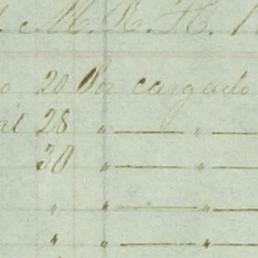 M. R. H.
o 20 Por cargado
ril 28 " — " —
30 " — " —
" — " —
" — " —